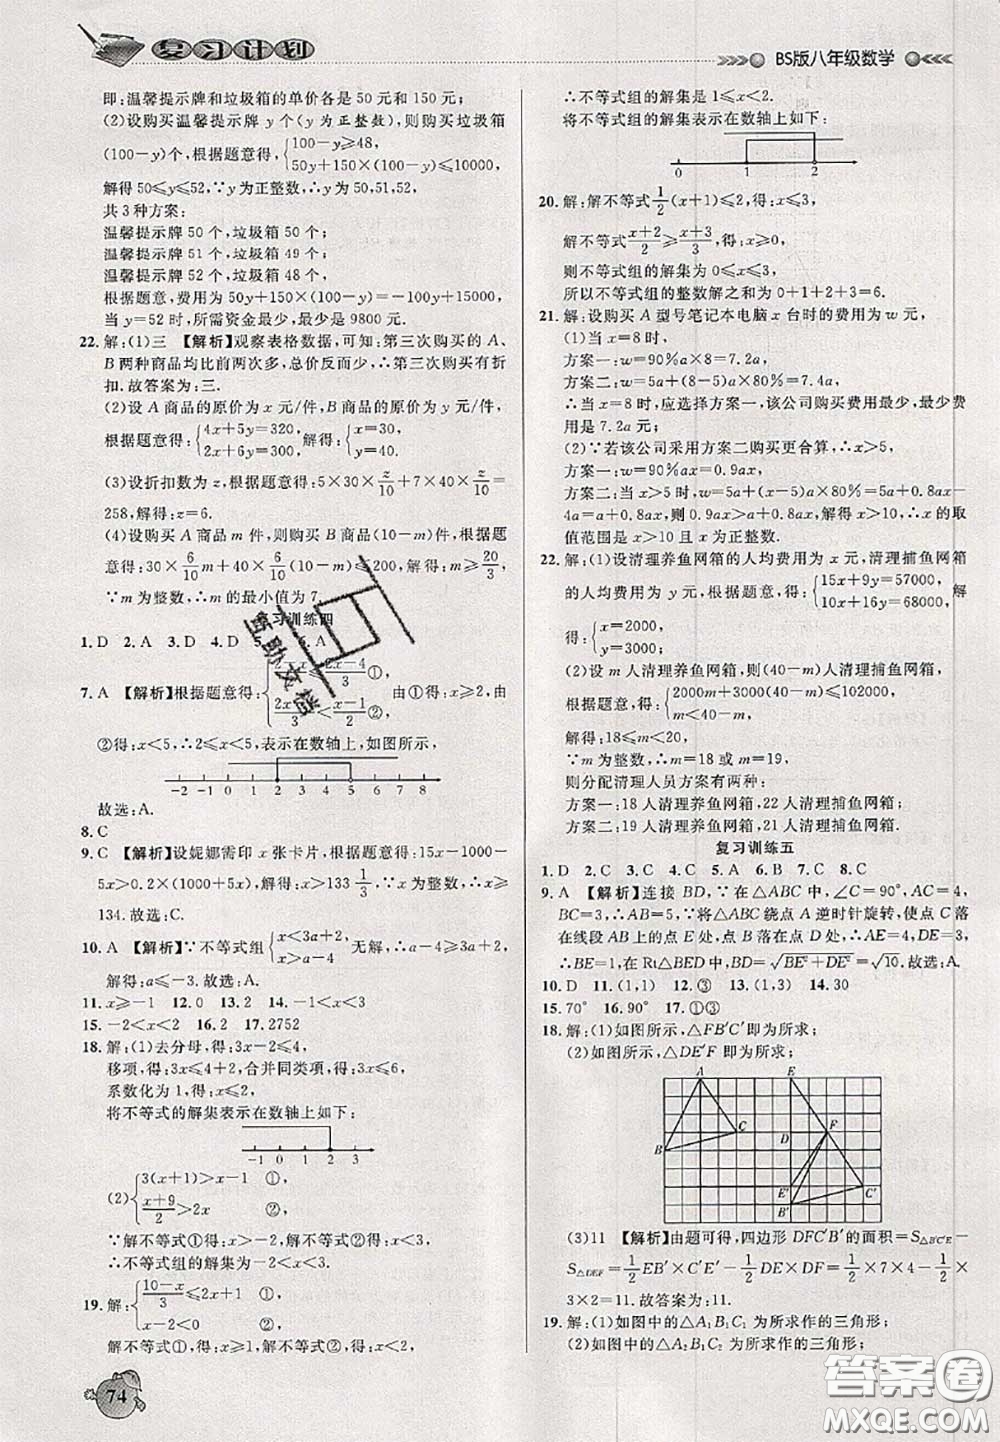 复习计划
BS版八年级数学
即:温馨提示牌和垃圾箱的单价各是50元和150元;
(2)设购买温馨提示牌y个(y为正整数),则购买垃圾箱
(100-y)个,根据题意得,{100-y≥48, 50y+150×(100-y)≤10000,
解得50≤y≤52,∵y为正整数,∴y为50,51,52,
共3种方案:
温馨提示牌50个,垃圾箱50个;
温馨提示牌51个,垃圾箱49个;
温馨提示牌52个,垃圾箱48个,
根据题意,费用为50y+150(100-y)=-100y+15000,
当y=52时,所需资金最少,最少是9800元.
22.解:(1)三 【解析】观察表格数据,可知:第三次购买的A、
B两种商品均比前两次多,总价反而少,∴第三次购买有折
扣.故答案为:三.
(2)设A商品的原价为x元/件,B商品的原价为y元/件,
根据题意得:{4x+5y=320, 2x+6y=300, 解得:{x=30, y=40.
(3)设折扣数为z,根据题意得:5×30×z/10+7×40×z/10=
258,解得:z=6.
(4)设购买A商品m件,则购买B商品(10-m)件,根据题
意得:30×6/10m+40×6/10(10-m)≤200,解得:m≥20/3.
∵m为整数,∴m的最小值为7.
复习训练四
1.D 2.A 3.D 4.D 5. 6.A
7.A 【解析】根据题意得:{ 2-x≤(2x-4)/3 ①, 2x/3<(x-1)/2 ②, 由①得:x≥2,由
②得:x<5,∴2≤x<5,表示在数轴上,如图所示,
-2 -1 0 1 2 3 4 5 6 7 8
故选:A.
8.C
9.C 【解析】设妮娜需印x张卡片,根据题意得:15x-1000-
5x>0.2×(1000+5x),解得:x>133 1/3,∵x为整数,∴x≥
134.故选:C.
10.A 【解析】∵不等式组{x<3a+2, x>a-4 无解,∴a-4≥3a+2,
解得:a≤-3.故选:A.
11.x≥-1 12.0 13.2 14.-1<x<3
15.-2<x<2 16.2 17.2752
18.解:(1)去分母,得:3x-2≤4,
移项,得:3x≤4+2,合并同类项,得:3x≤6,
系数化为1,得:x≤2,
将不等式的解集表示在数轴上如下:
-1 0 1 2 3
(2){3(x+1)>x-1 ①, (x+9)/2>2x ②,
∵解不等式①得:x>-2,解不等式②得:x<3,
∴不等式组的解集为-2<x<3.
19.解:{(10-x)/3≤2x+1 ①, x-2<0 ②,
解不等式①,得:x≥1,解不等式②,得:x<2,
∴不等式组的解集是1≤x<2.
将不等式组的解集表示在数轴上如下:
0 1 2
20.解:解不等式1/2(x+1)≤2,得:x≤3,
解不等式(x+2)/2≥(x+3)/3,得:x≥0,
则不等式组的解集为0≤x≤3,
所以不等式组的整数解之和为0+1+2+3=6.
21.解:设购买A型号笔记本电脑x台时的费用为w元,
(1)当x=8时,
方案一:w=90%a×8=7.2a,
方案二:w=5a+(8-5)a×80%=7.4a,
∴当x=8时,应选择方案一,该公司购买费用最少,最少费
用是7.2a元;
(2)∵若该公司采用方案二购买更合算,∴x>5,
方案一:w=90%ax=0.9ax,
方案二:当x>5时,w=5a+(x-5)a×80%=5a+0.8ax-
4a=a+0.8ax,则0.9ax>a+0.8ax,解得x>10,∴x的取
值范围是x>10且x为正整数.
22.解:(1)设清理养鱼网箱的人均费用为x元,清理捕鱼网箱
的人均费用为y元,根据题意,得:{15x+9y=57000, 10x+16y=68000, 解
得:{x=2000, y=3000;
(2)设m人清理养鱼网箱,则(40-m)人清理捕鱼网箱,
根据题意,得:{2000m+3000(40-m)≤102000, m<40-m,
解得:18≤m<20,
∵m为整数,∴m=18或m=19,
则分配清理人员方案有两种:
方案一:18人清理养鱼网箱,22人清理捕鱼网箱;
方案二:19人清理养鱼网箱,21人清理捕鱼网箱.
复习训练五
1.D 2.C 3.C 4.A 5.A 6.B 7.C 8.C
9.A 【解析】连接BD,∵在△ABC中,∠C=90°,AC=4,
BC=3,∴AB=5,∵将△ABC绕点A逆时针旋转,使点C落
在线段AB上的点E处,点B落在点D处,∴AE=4,DE=3,
∴BE=1,在Rt△BED中,BD=√(BE²+DE²)=√10.故选:A.
10.D 11.(1,1) 12.③ 13.(1,3) 14.30
15.70° 16.90° 17.①③
18.解:(1)如图所示,△FB′C′即为所求;
(2)如图所示,△DE′F即为所求;
A E
B C D F
E′ B′ C′
(3)11 【解析】由题可得,四边形DFC′B′的面积=S△B′C′E-
S△DEF=1/2EB′×C′E′-1/2DE×DF=1/2×7×4-1/2×
3×2=11.故答案为:11.
19.解:(1)如图中的△A₁B₁C₁为所求作的三角形;
(2)如图中的△A₂B₂C₂为所求作的三角形;
74
互助文档
答案圈
MXQE.COM